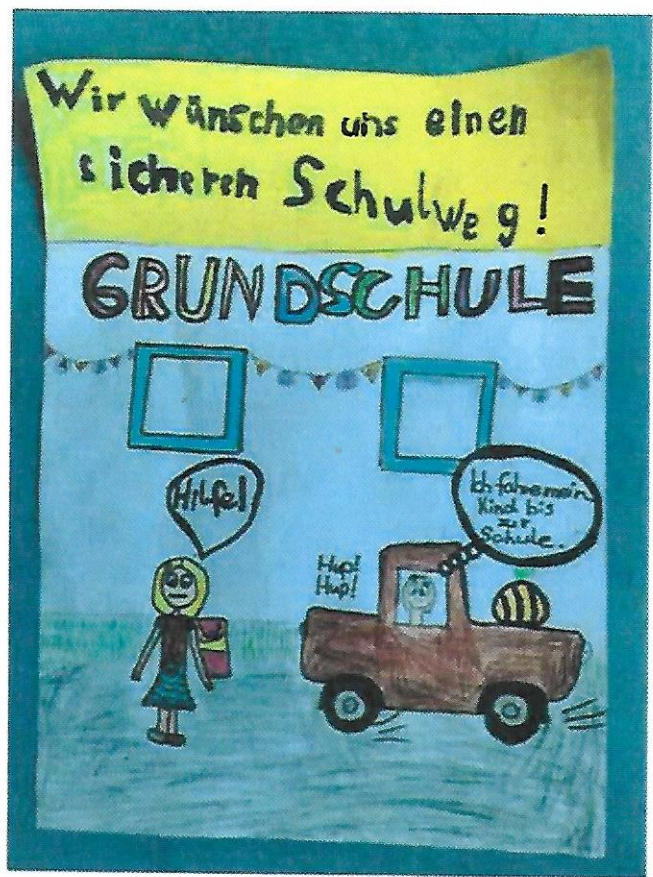 Wir wünschen uns einen
sicheren Schulweg!
GRUNDSCHULE
Hilfe!
Ich fahre mein
Kind bis
zur
Schule.
Hup!
Hup!